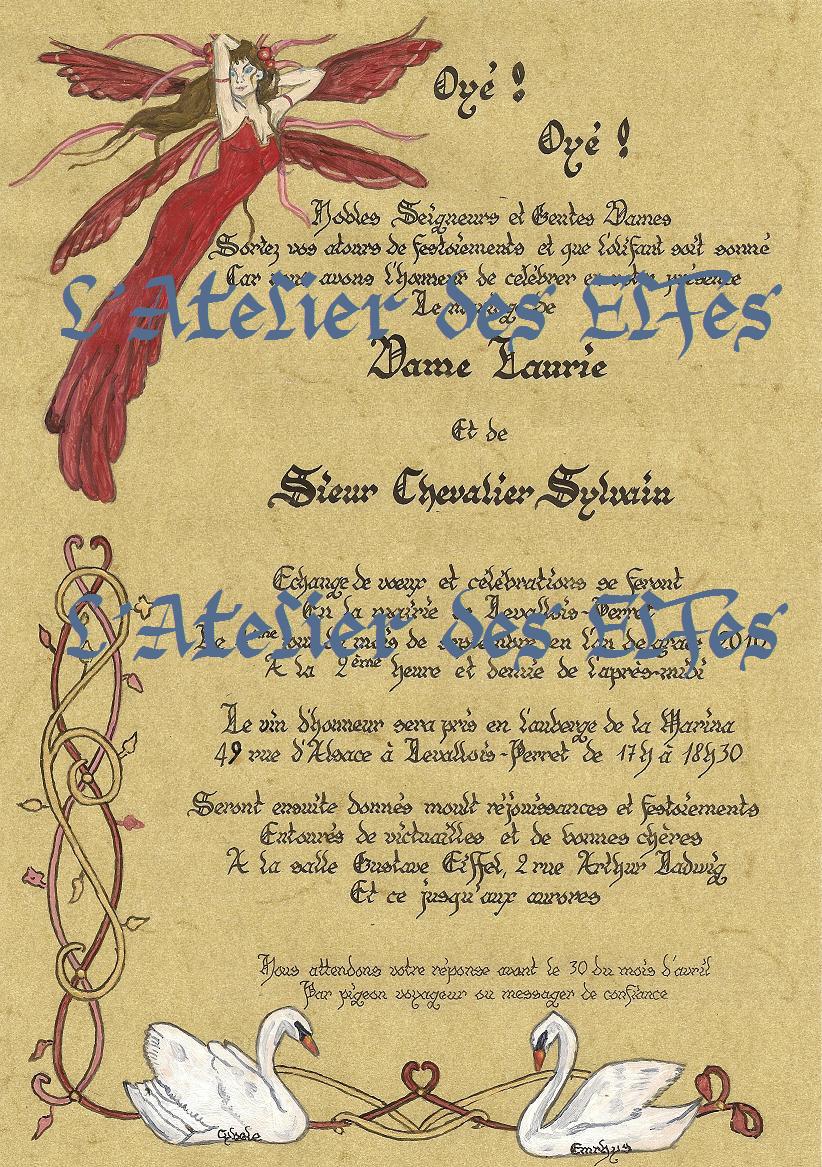 Oyé !
Oyé !
Nobles Seigneurs et Gentes Dames
Sortez vos atours de festoiements et que l'olifant soit sonné
Car nous avons l'honneur de célébrer en votre présence
L'Atelier des Elfes
Le mariage de
Dame Laurie
Et de
Sieur Chevalier Sylvain
Echange de voeux et célébrations se feront
En la mairie de Levallois-Perret
L'Atelier des Elfes
Le jour du mois de septembre en l'an de grâce
A la 2ème heure et demie de l'après-midi
Le vin d'honneur sera pris en l'auberge de la Marina
49 rue d'Alsace à Levallois-Perret de 17h à 18h30
Seront ensuite donnés moult réjouissances et festoiements
Entourés de victuailles et de bonnes chères
A la salle Gustave Eiffel, 2 rue Arthur Ladwig
Et ce jusqu'aux aurores
Nous attendons votre réponse avant le 30 du mois d'avril
Par pigeon voyageur ou messager de confiance